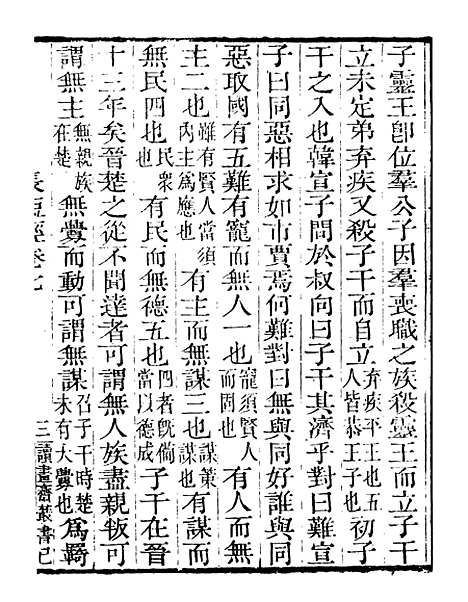 子靈王卽位羣公子因羣喪職之族殺靈王而立子干
立未定弟弃疾又殺子干而自立弃疾平王也五人皆恭王子也初子
干之入也韓宣子問於叔向曰子干其濟乎對曰難宣
子曰同惡相求如市賈焉何難對曰無與同好誰與同
惡取國有五難有寵而無人一也寵須賢人而固也有人而無
主二也雖有賢人當須內主爲應也有主而無謀三也謀策謀也有謀而
無民四也民衆也有民而無德五也四者旣備當以德成子干在晉
十三年矣晉楚之從不聞達者可謂無人族盡親叛可
謂無主無親族在楚無釁而動可謂無謀召子干時楚未有大釁也爲羇
長短經卷七 三 讀畫齋叢書己